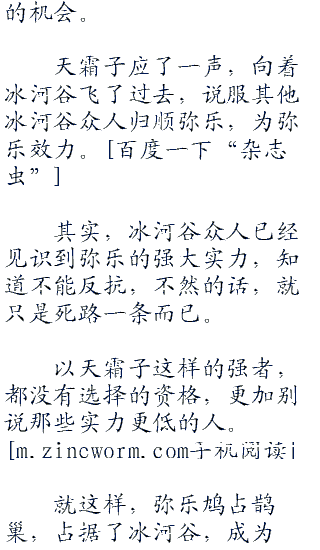 的机会。
天霜子应了一声，向着
冰河谷飞了过去，说服其他
冰河谷众人归顺弥乐，为弥
乐效力。[百度一下“杂志
虫”]
其实，冰河谷众人已经
见识到弥乐的强大实力，知
道不能反抗，不然的话，就
只是死路一条而已。
以天霜子这样的强者，
都没有选择的资格，更加别
说那些实力更低的人。
[m.zincworm.com手机阅读i
就这样，弥乐鸠占鹊
巢，占据了冰河谷，成为